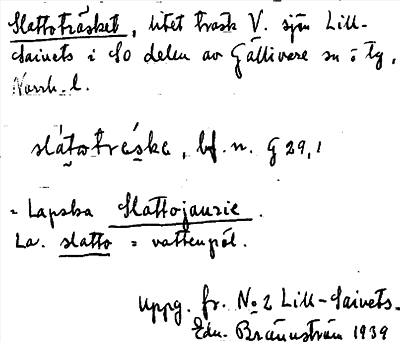 Slattoträsket, litet träsk V. sjön Lill-
Saivets i SO delen av Gällivare sn o tg,
Norrb. l.
slátotrèske, bf. n. G 29,1
= Lapska Slattojaurie.
La. slatto = vattenpöl.
Uppg. fr. No 2 Lill-Saivets.
Edv. Brännström 1939